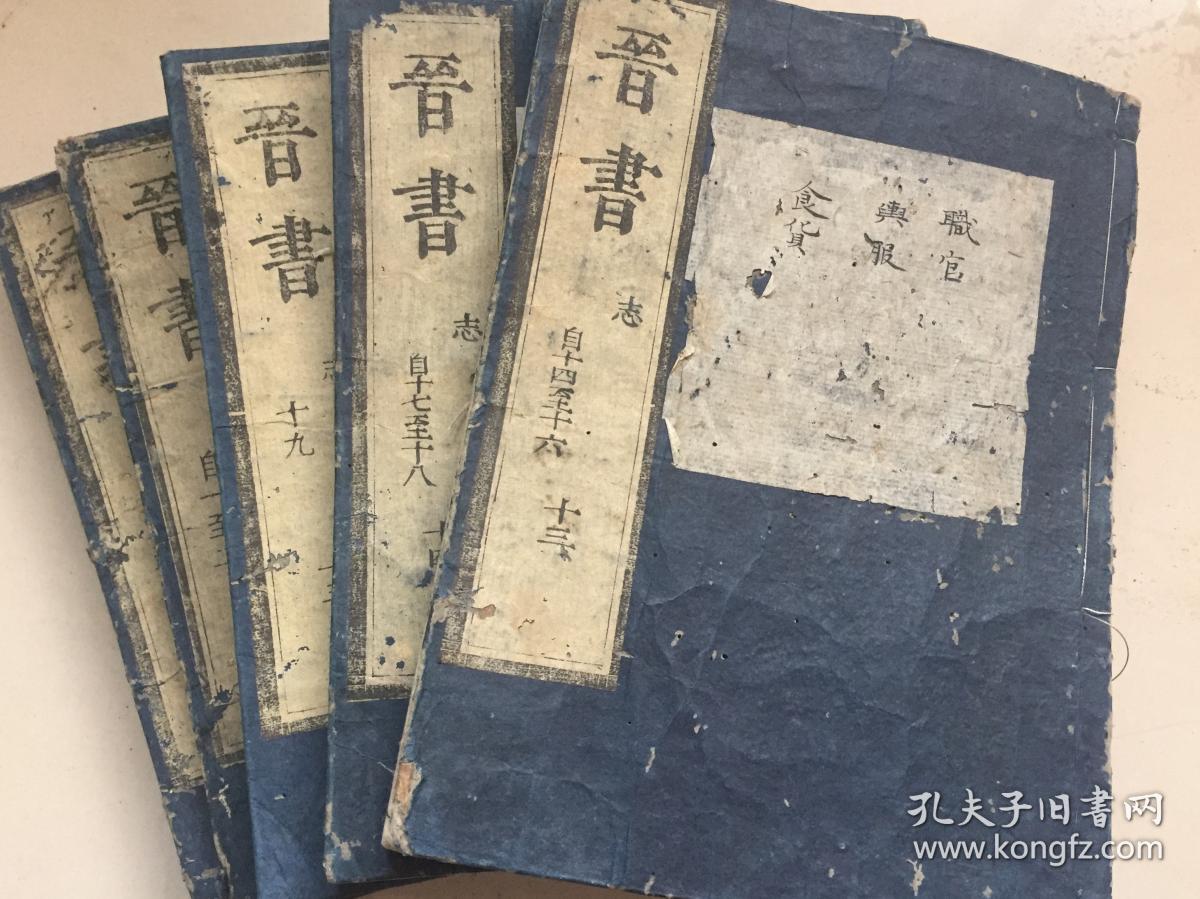 晉書
志
自十四至十六
十三
職官
輿服
食貨
晉書
志
自十七至十八
十四
晉書
志
十九
晉書
孔夫子旧书网
www.kongfz.com